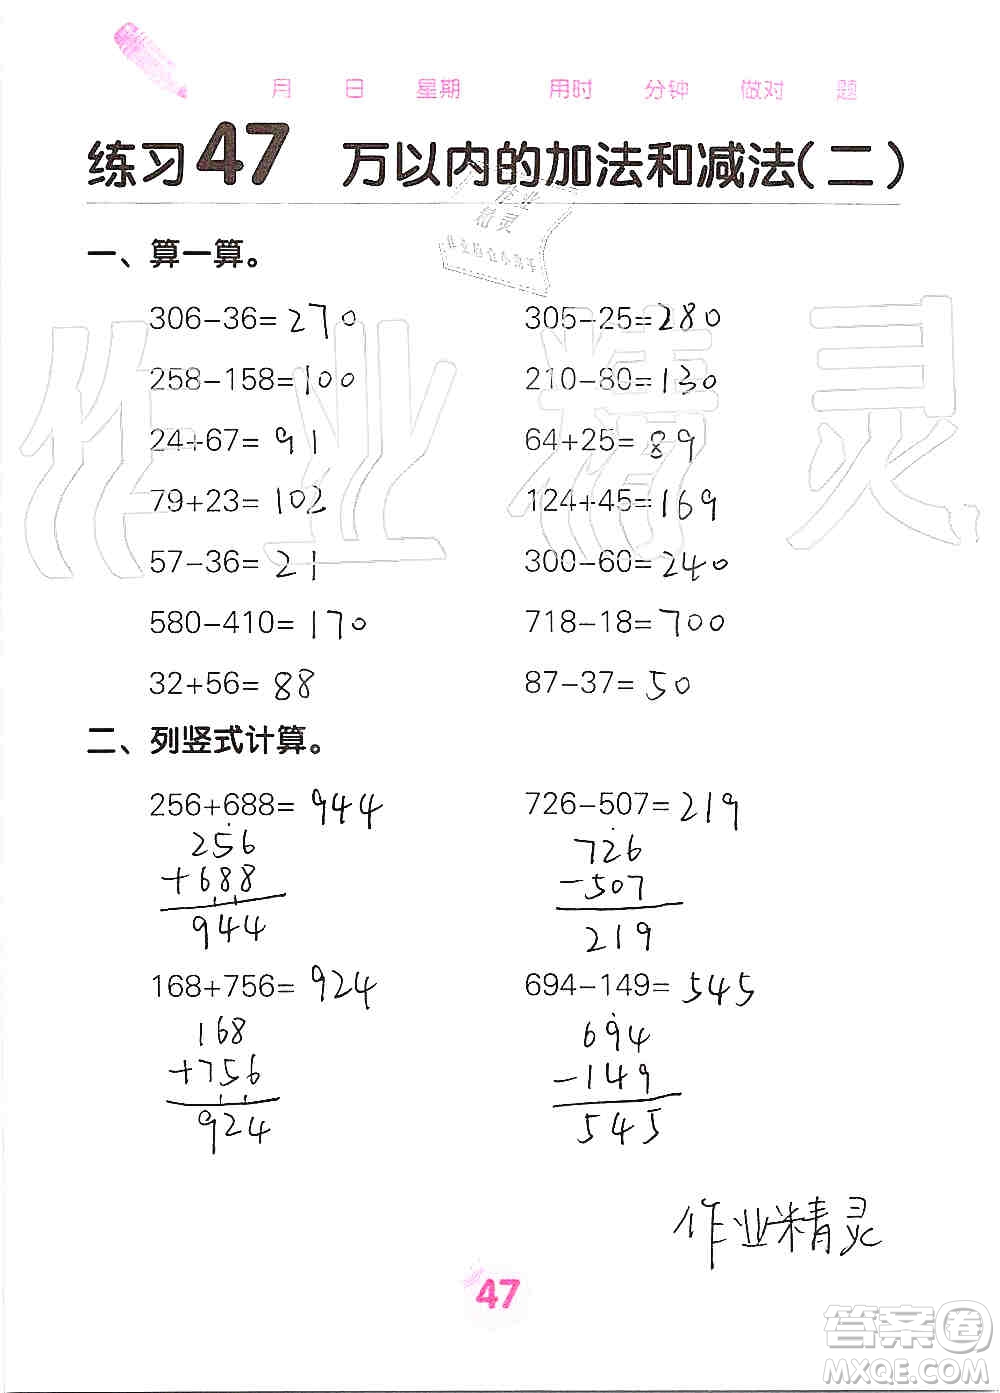 月 日 星期 用时 分钟 做对 题
练习47 万以内的加法和减法（二）
作业
精灵
一、算一算。
306－36=270 305－25=280
258－158=100 210－80=130
24+67=91 64+25=89
79+23=102 124+45=169
57－36=21 300－60=240
580－410=170 718－18=700
32+56=88 87－37=50
作业精灵
二、列竖式计算。
256+688=944 726－507=219
256 726
+688 －507
944 219
168+756=924 694－149=545
168 694
+756 －149
924 545
作业精灵
47
答案圈
MXQE.COM